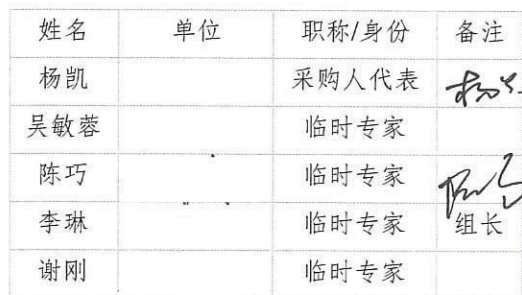 姓名 单位 职称/身份 备注
杨凯 采购人代表
吴敏蓉 临时专家
陈巧 临时专家
李琳 临时专家 组长
谢刚 临时专家